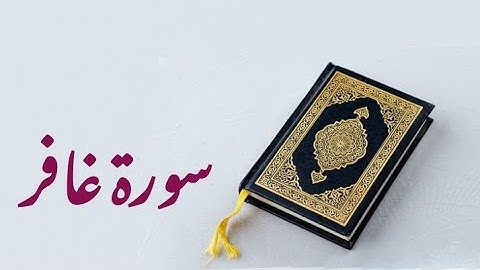 سورة غافر